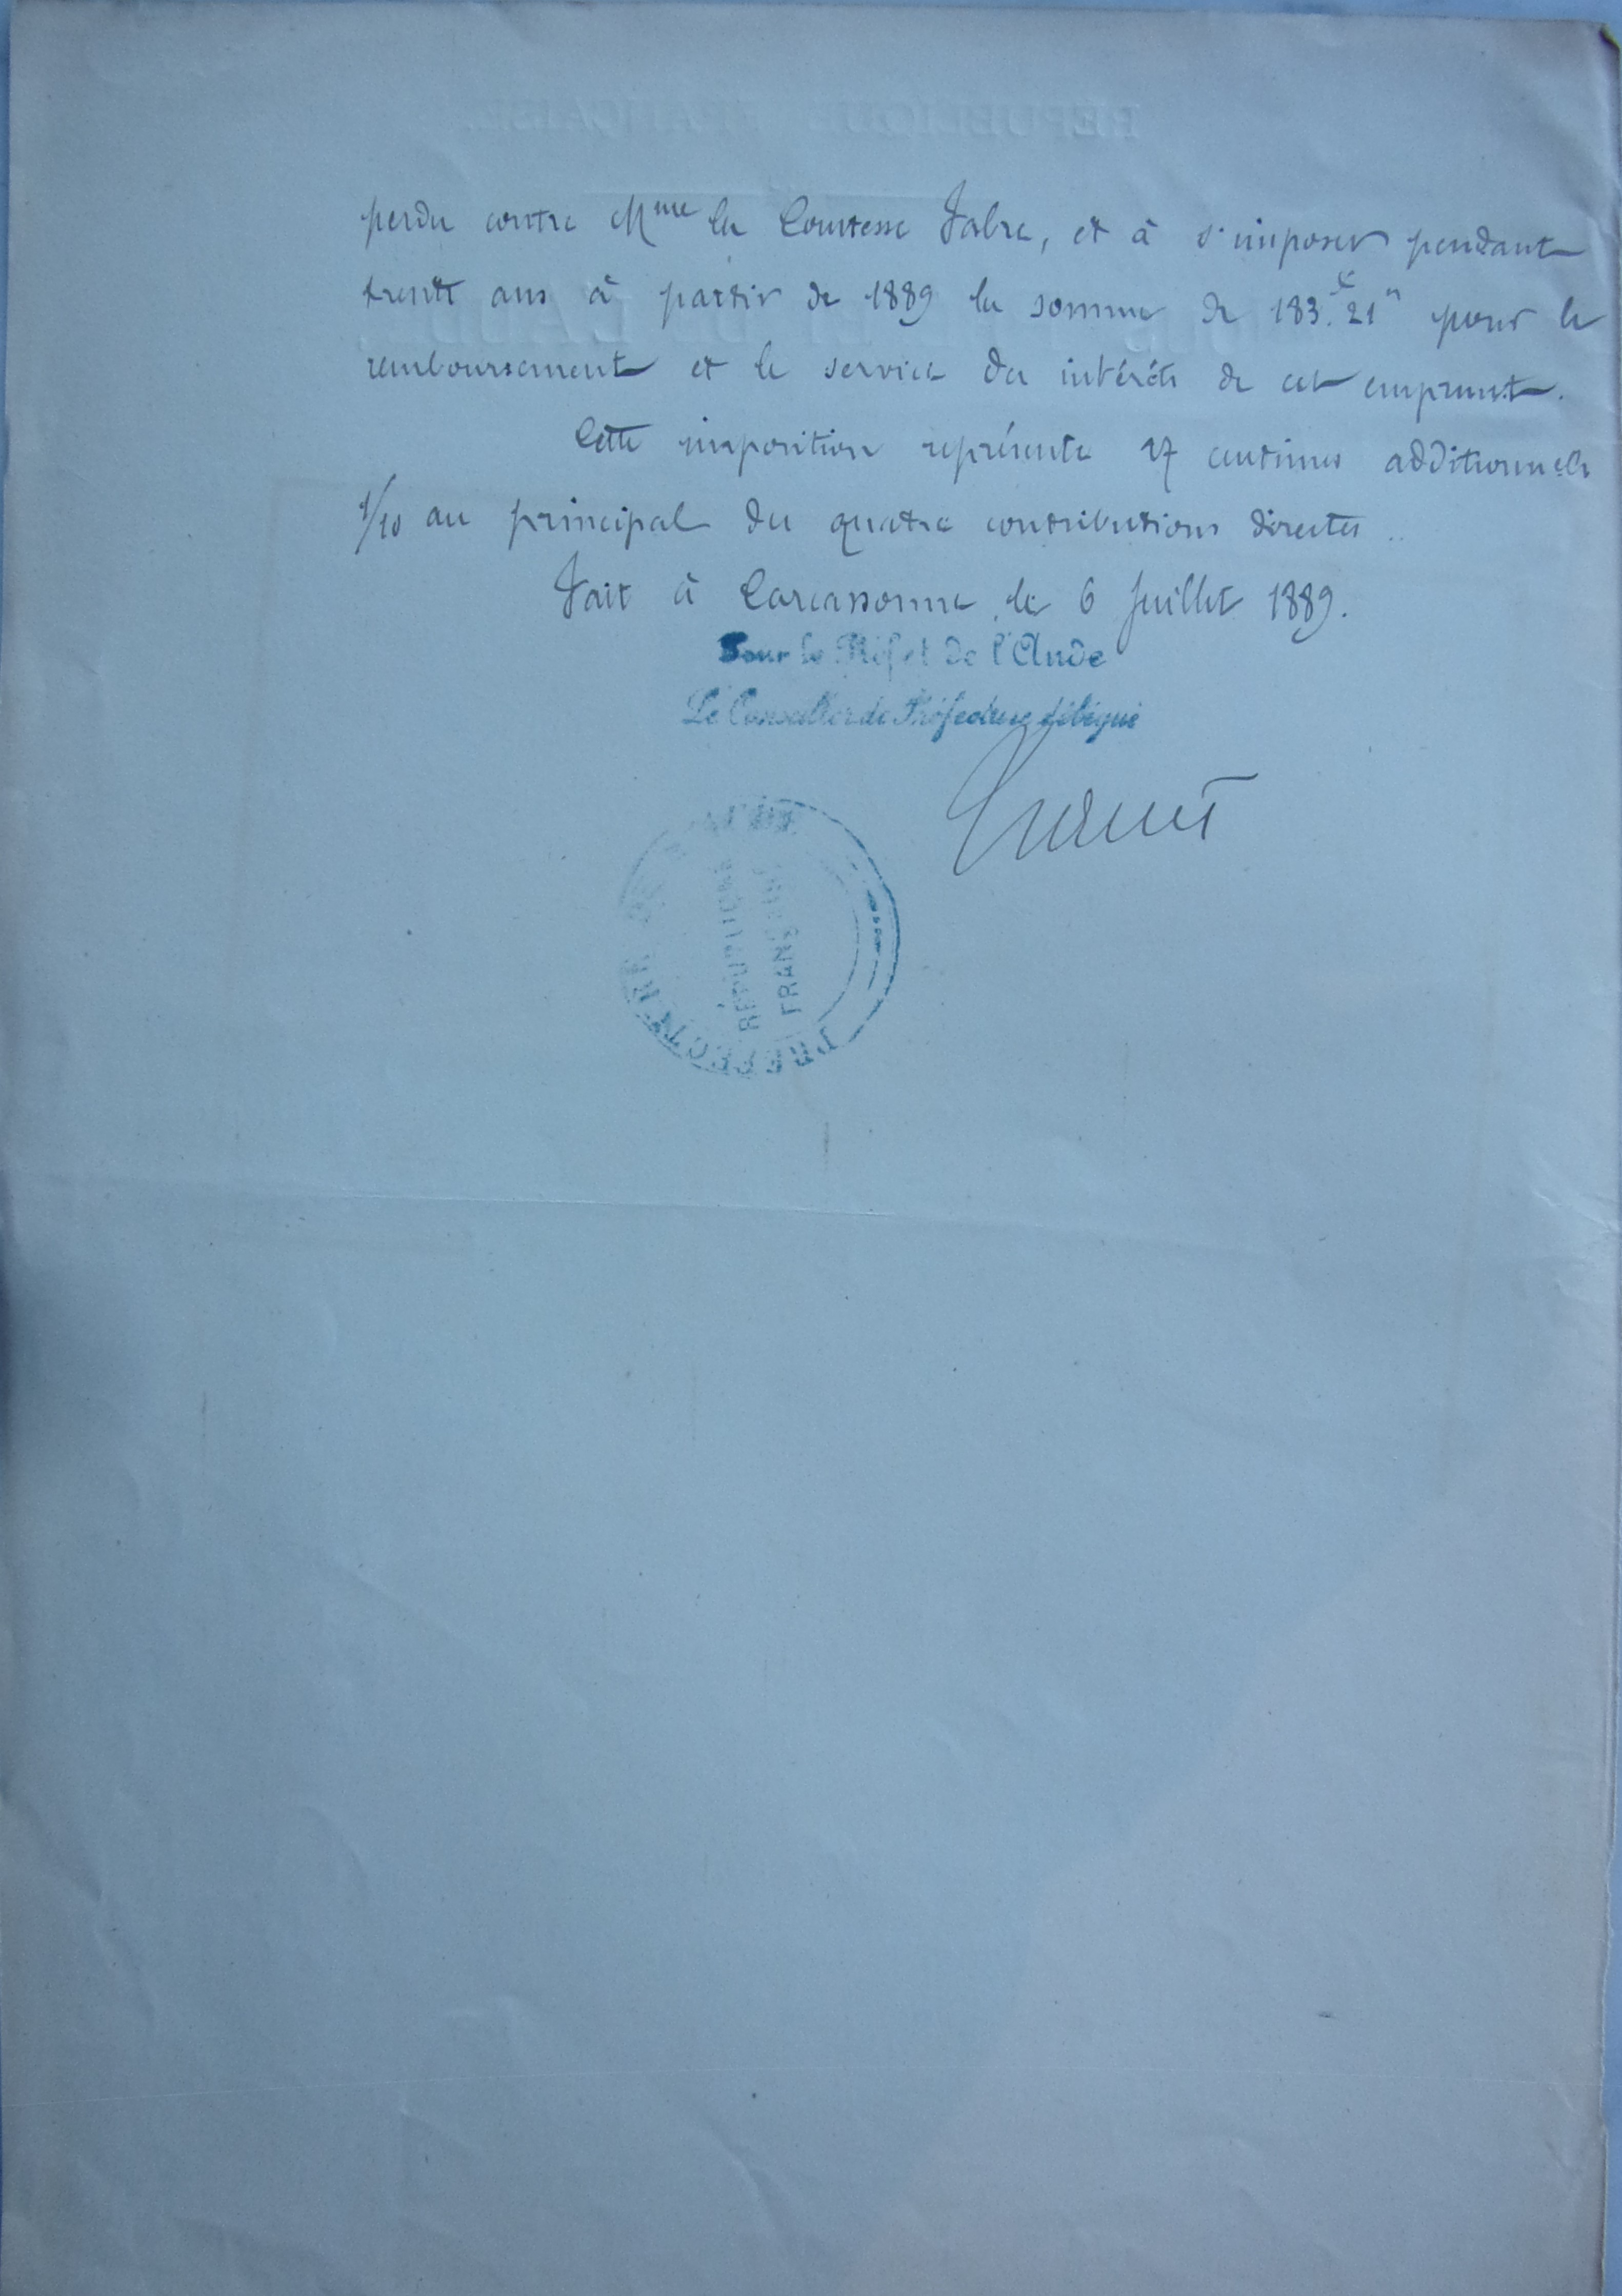 perdu contre Mme la Comtesse Fabre, et à s'imposer pendant
trente ans à partir de 1889 la somme de 183.f 21c pour le
remboursement et le service des intérêts de cet emprunt.
Cette imposition représente 17 centimes additionnels
1/10 au principal des quatre contributions directes..
Fait à Carcassonne, le 6 Juillet 1889.
Pour le Préfet de l'Aude
Le Conseiller de Préfecture délégué
PRÉFECTURE DE L'AUDE
RÉPUBLIQUE
FRANÇAISE